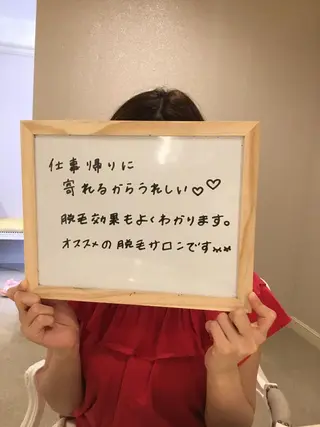 仕事帰りに
寄れるからうれしい♡♡
脱毛効果もよくわかります。
オススメの脱毛サロンです